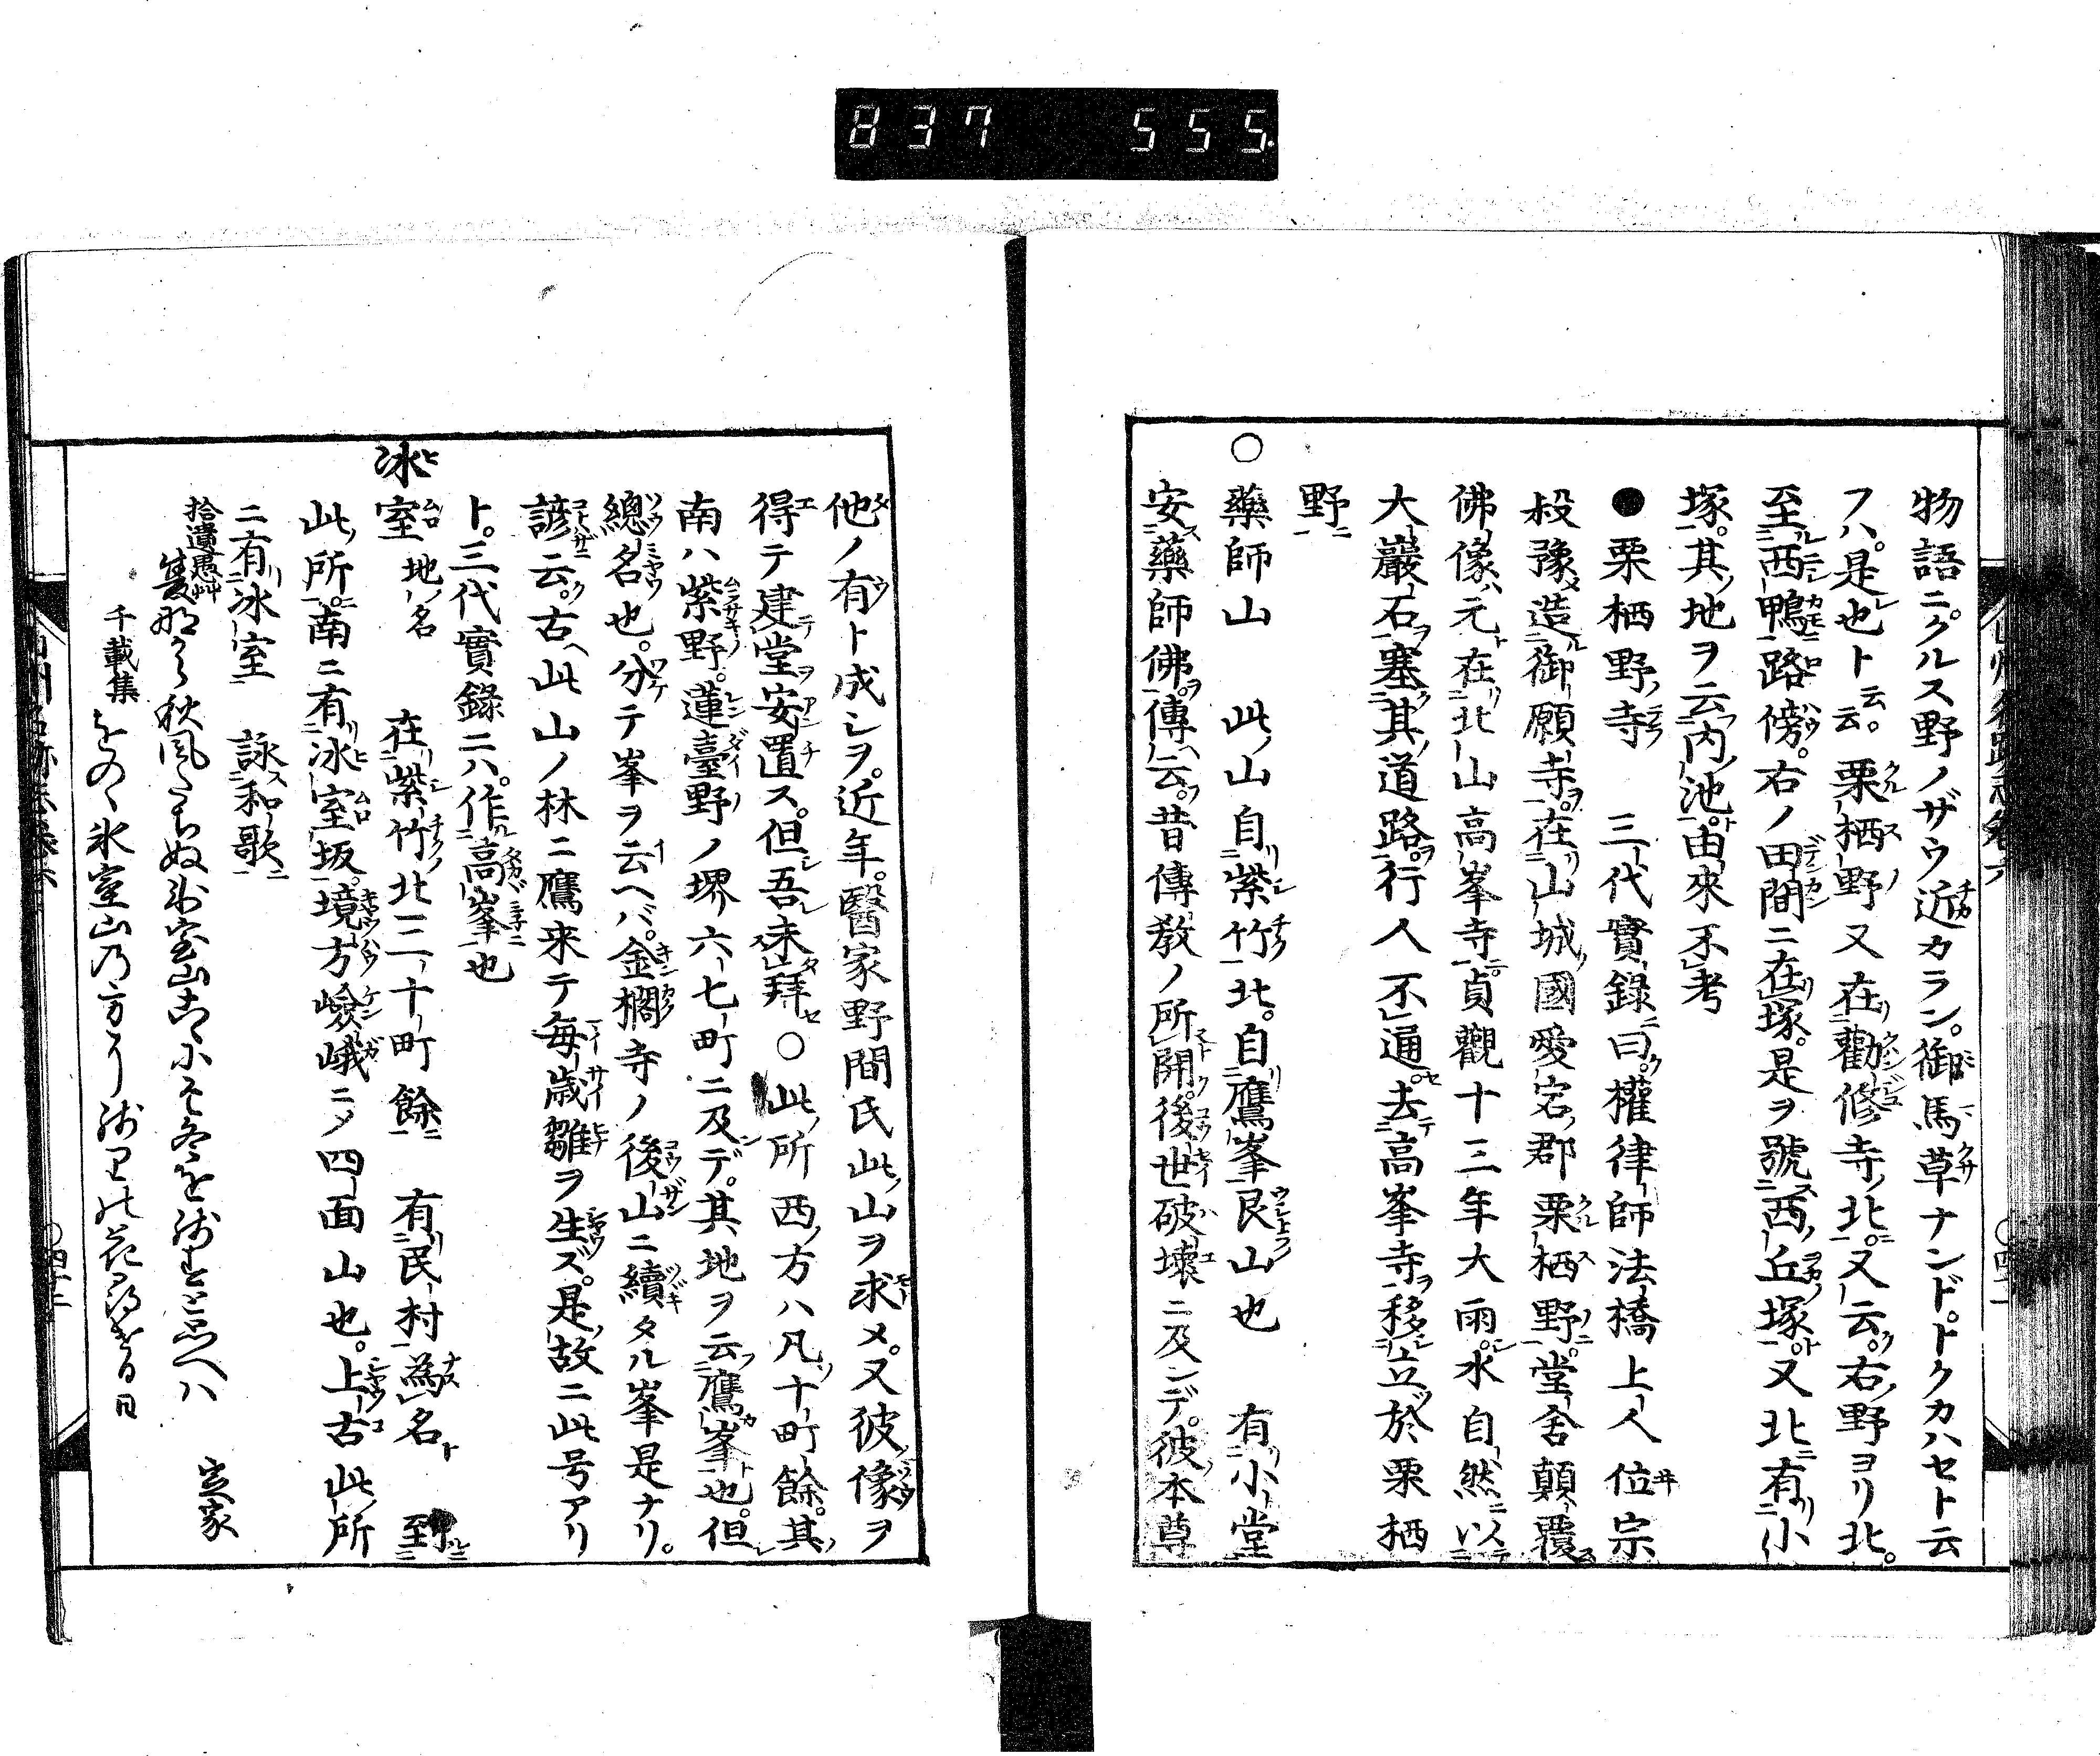 837 555
物語ニクルス野ノザウ近カラン。御馬草ナンド。トクカハセト云
フハ。是也ト云云。栗栖野又在勸修寺ノ北。又云。右ノ野ヨリ北。
至西鴨路傍。右ノ田間ニ在塚。是ヲ號西ノ丘塚。又北ニ有小
塚。其ノ地ヲ云內池。由來不考
●栗栖野寺 三代實錄曰。權律師法橋上人位宗
叡豫造御願寺。在山城國愛宕郡栗栖野。堂舍顛覆
佛像ハ元在北山高峯寺。貞觀十三年大雨。水自然以
大巖石塞其道路。行人不通。去高峯寺移立於栗栖
野
○藥師山 此山自紫竹北。自鷹峯艮山也 有小堂
安藥師佛。傳云。昔傳敎ノ所開。後世破壞ニ及ンデ。彼本尊
他ノ有ト成シヲ。近年。醫家野間氏此山ヲ求メ。又彼像ヲ
得テ建堂安置ス。但吾未拜 ○此所西ノ方ハ凡十町餘。其
南ハ紫野。蓮臺野ノ堺六七町ニ及デ。其地ヲ云鷹峯也。但
總名也。分テ峯ヲ云ヘバ。金閣寺ノ後山ニ續タル峯是ナリ。
諺云。古ヘ此山ノ林ニ鷹来テ每歲雛ヲ生ズ。是故ニ此号アリ
ト。三代實錄ニハ。作高峯也
氷室 地名 在紫竹北二十町餘 有民村為名 到
此所。南ニ有氷室坂。境方嶮峨ニメ四面山也。上古此所
ニ有氷室 詠和歌
拾遺愚艸 夏ながら秋風たちぬ氷室山こゝにぞ冬を残すと思へハ 定家
千載集